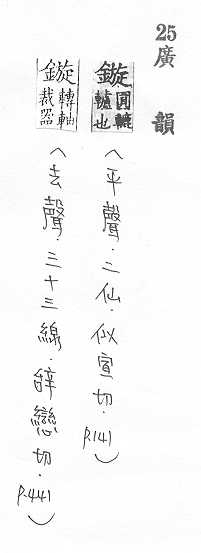 25
廣韻
鏇圓轆轤也
(平聲.二仙.似宣切.P.141)
鏇轉軸裁器
(去聲.三十三線.辭戀切.P.441)